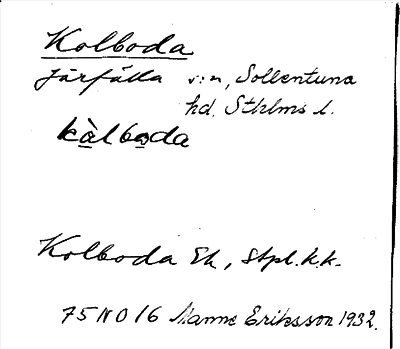 Kolboda
Järfälla s:n, Sollentuna
hd, Sthlms l.
kàlboda
Kolboda Ek, stpl. k.k.
75 NO 16 Manne Eriksson 1932.